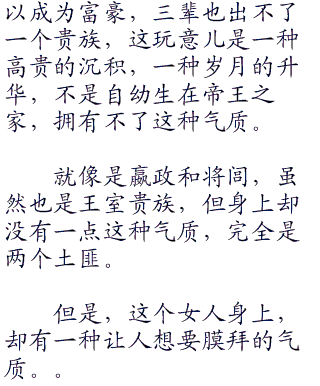 以成为富豪，三辈也出不了
一个贵族，这玩意儿是一种
高贵的沉积，一种岁月的升
华，不是自幼生在帝王之
家，拥有不了这种气质。
就像是嬴政和将闾，虽
然也是王室贵族，但身上却
没有一点这种气质，完全是
两个土匪。
但是，这个女人身上，
却有一种让人想要膜拜的气
质。。